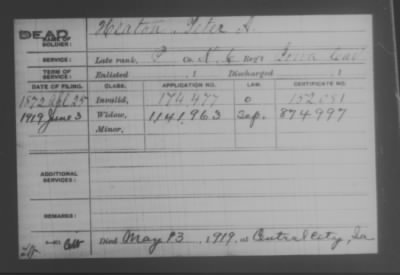 DEAD
NAME OF SOLDIER: Heaton, Peter A.
SERVICE: Late rank, P Co. K, 6 Reg't Iowa Cav
TERM OF SERVICE: Enlisted , 1 Discharged , 1
DATE OF FILING. CLASS. APPLICATION NO. LAW. CERTIFICATE NO.
1872 Apl 25 Invalid, 174,477 O 152081
1919 June 3 Widow, 1141,963 Sep. 874997
Minor,
ADDITIONAL SERVICES:
REMARKS:
Died May 13, 1919, at Central City, Ia